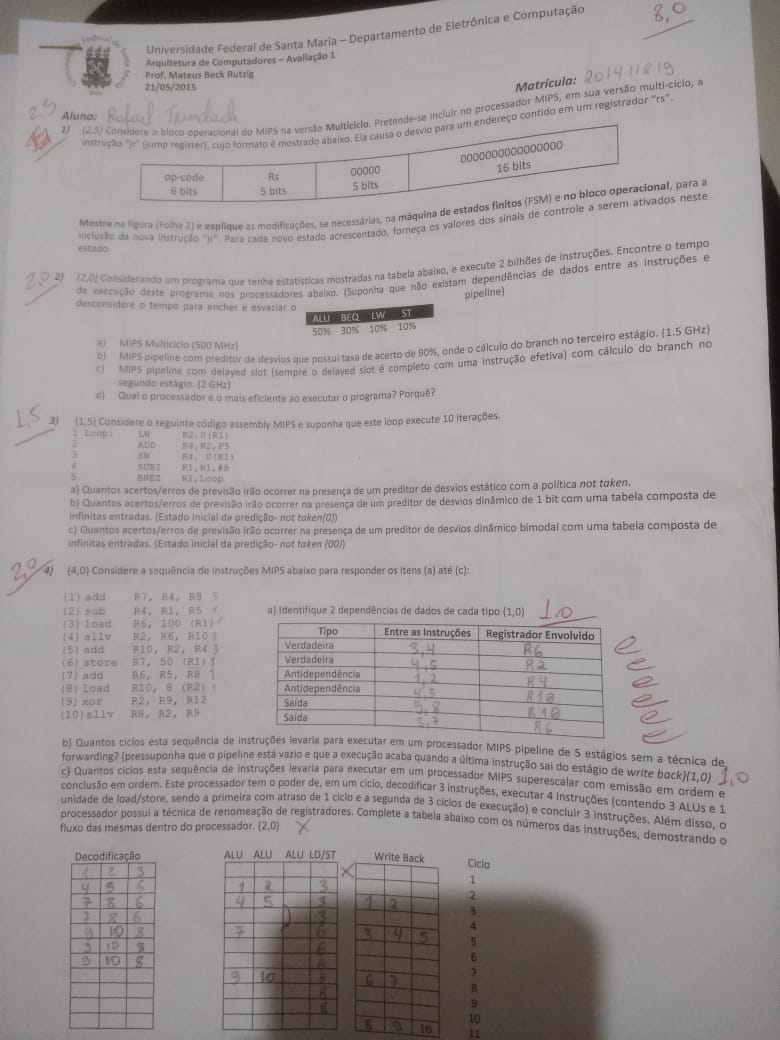 8,0
Universidade Federal de Santa Maria – Departamento de Eletrônica e Computação
Arquitetura de Computadores – Avaliação 1
Prof. Mateus Beck Rutzig
21/05/2015
Matrícula: 201411819
2,5
Aluno: Rafael Trindade
1) (2,5) Considere o bloco operacional do MIPS na versão Multiciclo. Pretende-se incluir no processador MIPS, em sua versão multi-ciclo, a
instrução "jr" (jump register), cujo formato é mostrado abaixo. Ela causa o desvio para um endereço contido em um registrador "rs".
op-code Rs 00000 0000000000000000
6 bits 5 bits 5 bits 16 bits
Mostre na figura (Folha 2) e explique as modificações, se necessárias, na máquina de estados finitos (FSM) e no bloco operacional, para a
inclusão da nova instrução "jr". Para cada novo estado acrescentado, forneça os valores dos sinais de controle a serem ativados neste
estado.
2,0
2) (2,0) Considerando um programa que tenha estatísticas mostradas na tabela abaixo, e execute 2 bilhões de instruções. Encontre o tempo
de execução deste programa nos processadores abaixo. (Suponha que não existam dependências de dados entre as instruções e
desconsidere o tempo para encher e esvaziar o pipeline)
ALU BEQ LW ST
50% 30% 10% 10%
a) MIPS Multiciclo (500 MHz)
b) MIPS pipeline com preditor de desvios que possui taxa de acerto de 90%, onde o cálculo do branch no terceiro estágio. (1.5 GHz)
c) MIPS pipeline com delayed slot (sempre o delayed slot é completo com uma instrução efetiva) com cálculo do branch no
segundo estágio. (2 GHz)
d) Qual o processador é o mais eficiente ao executar o programa? Porquê?
1,5
3) (1,5) Considere o seguinte código assembly MIPS e suponha que este loop execute 10 iterações.
1 Loop: LW R2, 0(R1)
2 ADD R4, R2, F5
3 SW R4, 0(R1)
4 SUBI R1, R1, #8
5 BNEZ R1, Loop
a) Quantos acertos/erros de previsão irão ocorrer na presença de um preditor de desvios estático com a política not taken.
b) Quantos acertos/erros de previsão irão ocorrer na presença de um preditor de desvios dinâmico de 1 bit com uma tabela composta de
infinitas entradas. (Estado inicial da predição- not taken(0))
c) Quantos acertos/erros de previsão irão ocorrer na presença de um preditor de desvios dinâmico bimodal com uma tabela composta de
infinitas entradas. (Estado inicial da predição- not taken (00))
2,0
4) (4,0) Considere a sequência de instruções MIPS abaixo para responder os itens (a) até (c):
(1) add R7, R4, R8 5
(2) sub R4, R1, R5
(3) load R6, 100 (R1)
(4) sllv R2, R6, R10
(5) add R10, R2, R4 3
(6) store R7, 50 (R1) 1
(7) add R6, R5, R8 1
(8) load R10, 8 (R2)
(9) xor R2, R9, R12
(10) sllv R8, R2, R9
a) Identifique 2 dependências de dados de cada tipo (1,0)
1,0
Tipo Entre as Instruções Registrador Envolvido
Verdadeira 3,4 R6
Verdadeira 4,5 R2
Antidependência 1,2 R4
Antidependência 4,5 R10
Saída 5,8 R10
Saída 3,7 R6
b) Quantos ciclos esta sequência de instruções levaria para executar em um processador MIPS pipeline de 5 estágios sem a técnica de
forwarding? (pressuponha que o pipeline está vazio e que a execução acaba quando a última instrução sai do estágio de write back)(1,0)
1,0
c) Quantos ciclos esta sequência de instruções levaria para executar em um processador MIPS superescalar com emissão em ordem e
conclusão em ordem. Este processador tem o poder de, em um ciclo, decodificar 3 instruções, executar 4 instruções (contendo 3 ALUs e 1
unidade de load/store, sendo a primeira com atraso de 1 ciclo e a segunda de 3 ciclos de execução) e concluir 3 instruções. Além disso, o
processador possui a técnica de renomeação de registradores. Complete a tabela abaixo com os números das instruções, demostrando o
fluxo das mesmas dentro do processador. (2,0)
Decodificação ALU ALU ALU LD/ST Write Back Ciclo
1 2 3 1
4 5 6 1 2 3 2
7 8 6 4 5 3 1 2 3
7 8 6 3 4
9 10 8 7 6 3 4 5 5
9 10 8 6 6
9 10 8 6 7
9 10 8 6 7 8
8 9
8 10
8 9 10 11